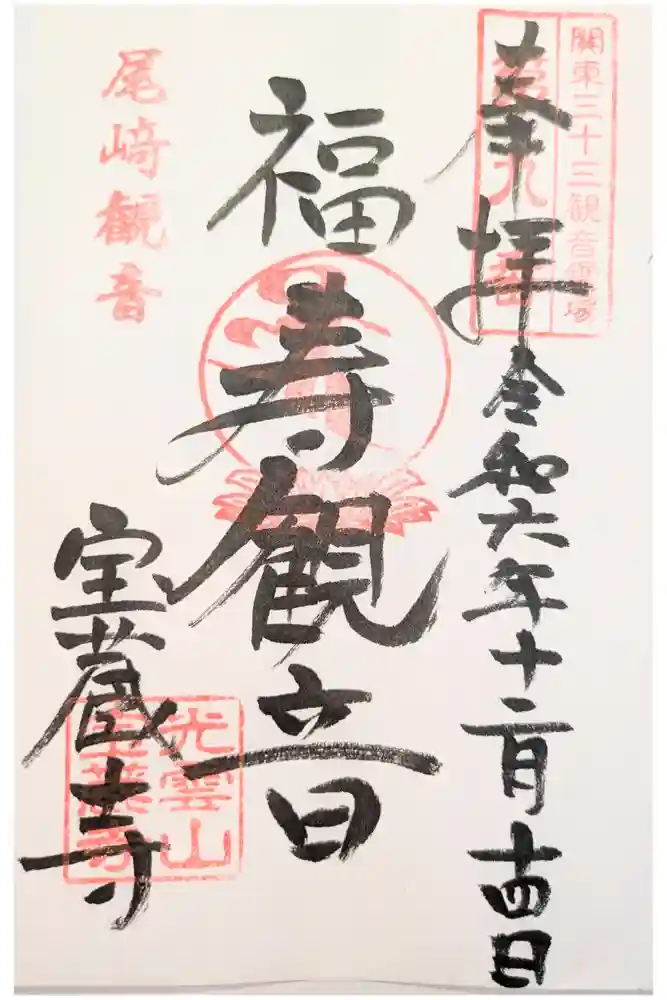 關東三十三観音霊場
奉拝 令和六年十二月十四日
福寿観音
尾﨑観音
宝蔵寺
光雲山
宝蔵寺